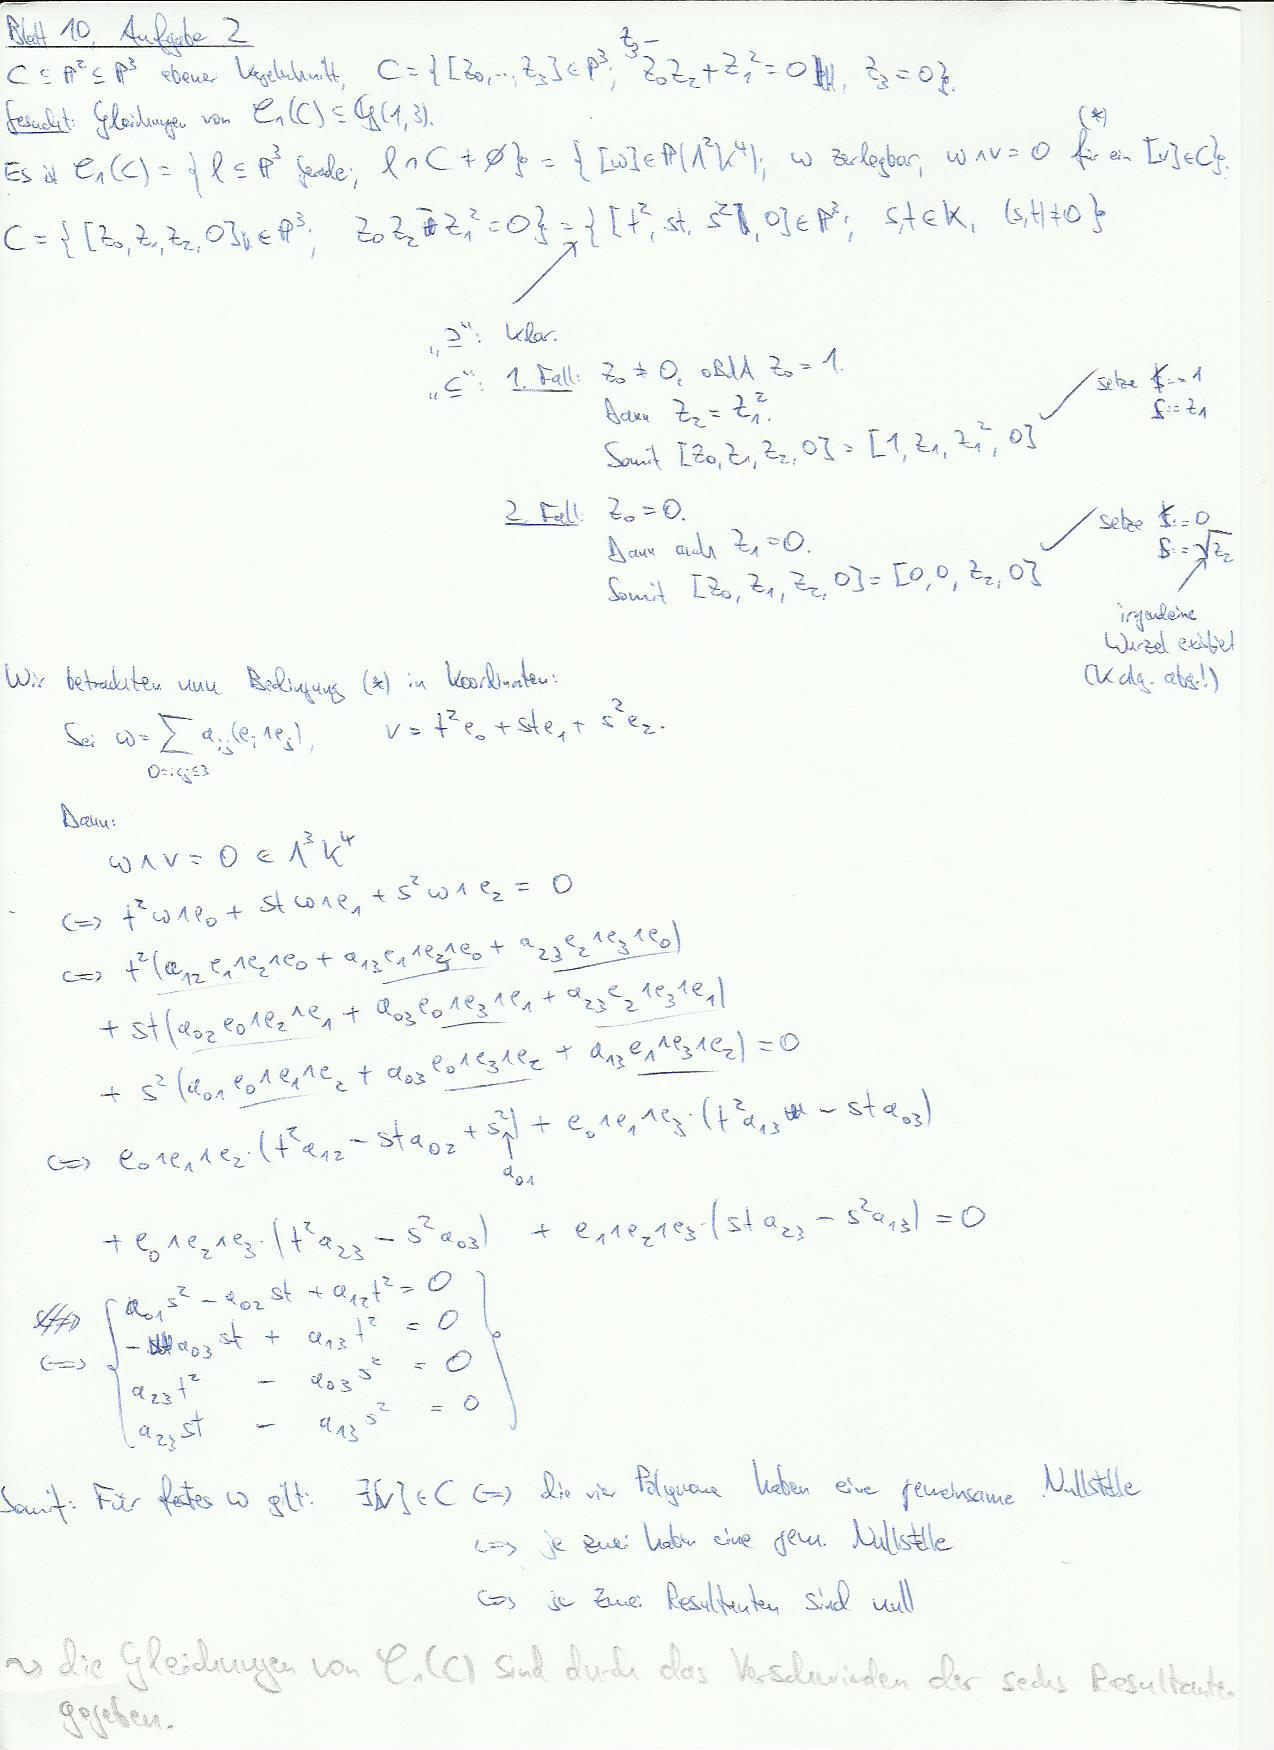 Blatt 10, Aufgabe 2
C ⊆ P² ⊆ P³ ebener Kegelschnitt, C = { [z₀,..., z₃] ∈ P³; z₀z₂ + z₁² = 0, z₃ = 0 }.
Gesucht: Gleichungen von C₁(C) ⊆ G(1,3).
Es ist C₁(C) = { l ⊆ P³ Gerade; l ∩ C ≠ ∅ } = { [ω] ∈ P(Λ²K⁴); ω zerlegbar, ω∧v = 0 für ein [v] ∈ C }.
(*)
C = { [z₀, z₁, z₂, 0] ∈ P³; z₀z₂ - z₁² = 0 } = { [t², st, s², 0] ∈ P³; s,t ∈ K, (s,t) ≠ 0 }
„⊇“: klar.
„⊆“: 1. Fall: z₀ ≠ 0, oBdA z₀ = 1.
Dann z₂ = z₁².
Somit [z₀, z₁, z₂, 0] = [1, z₁, z₁², 0]
setze t := 1
s := z₁
2. Fall: z₀ = 0.
Dann auch z₁ = 0.
Somit [z₀, z₁, z₂, 0] = [0, 0, z₂, 0]
setze t := 0
s := √z₂
irgendeine
Wurzel existiert
(K alg. abg.!)
Wir betrachten nun Bedingung (*) in Koordinaten:
Sei ω = ∑ aᵢⱼ(eᵢ∧eⱼ), v = t²e₀ + ste₁ + s²e₂.
0≤i<j≤3
Dann:
ω∧v = 0 ∈ Λ³K⁴
⇔ t²ω∧e₀ + stω∧e₁ + s²ω∧e₂ = 0
⇔ t²(a₁₂e₁∧e₂∧e₀ + a₁₃e₁∧e₃∧e₀ + a₂₃e₂∧e₃∧e₀)
+ st(a₀₂e₀∧e₂∧e₁ + a₀₃e₀∧e₃∧e₁ + a₂₃e₂∧e₃∧e₁)
+ s²(a₀₁e₀∧e₁∧e₂ + a₀₃e₀∧e₃∧e₂ + a₁₃e₁∧e₃∧e₂) = 0
⇔ e₀∧e₁∧e₂·(t²a₁₂ - sta₀₂ + s²) + e₀∧e₁∧e₃·(t²a₁₃ - sta₀₃)
a₀₁
+ e₀∧e₂∧e₃·(t²a₂₃ - s²a₀₃) + e₁∧e₂∧e₃·(sta₂₃ - s²a₁₃) = 0
a₀₁s² - a₀₂st + a₁₂t² = 0
⇔ -a₀₃st + a₁₃t² = 0
a₂₃t² - a₀₃s² = 0
a₂₃st - a₁₃s² = 0
Somit: Für festes ω gilt: ∃[v] ∈ C ⇔ die vier Polynome haben eine gemeinsame Nullstelle
⇔ je zwei haben eine gem. Nullstelle
⇔ je zwei Resultanten sind null
⇝ die Gleichungen von C₁(C) sind durch das Verschwinden der sechs Resultanten
gegeben.